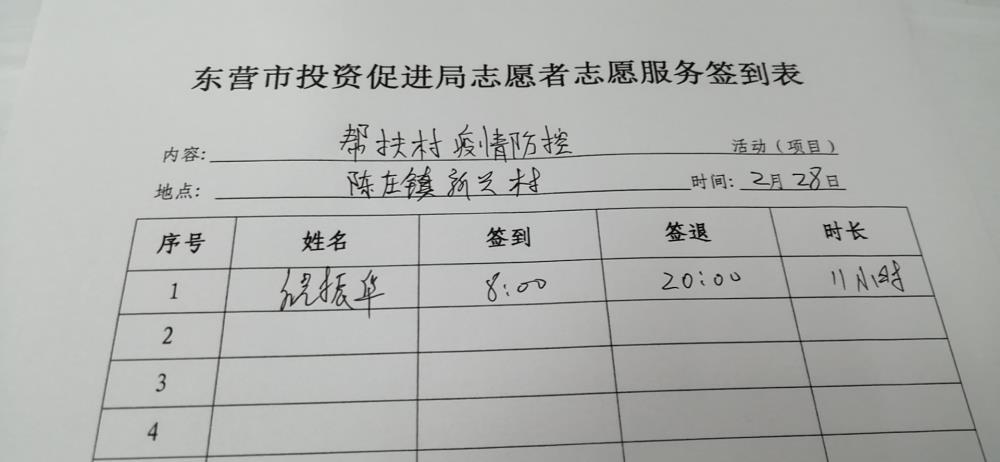 东营市投资促进局志愿者志愿服务签到表
内容: 帮扶村疫情防控 活动（项目）
地点: 陈庄镇新兴村 时间: 2月28日
序号 姓名 签到 签退 时长
1 振华 8:00 20:00 11小时
2
3
4